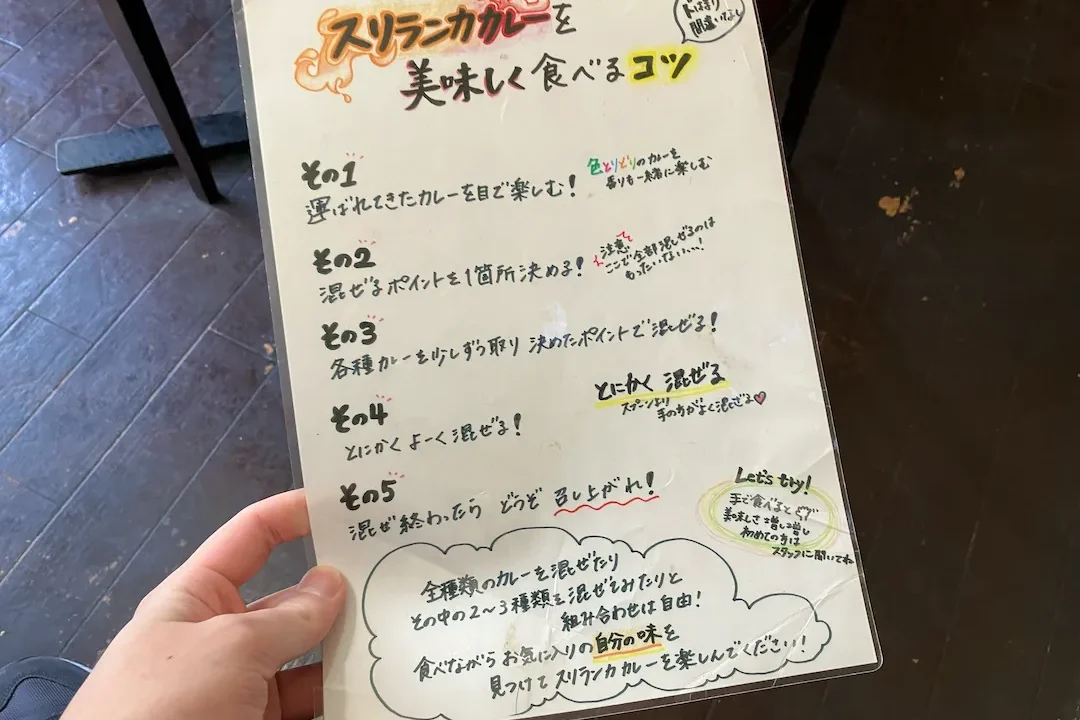 スリランカカレーを
美味しく食べるコツ
間違いなし
その1
運ばれてきたカレーを目で楽しむ!
色とりどりのカレーを
香りも一緒に楽しむ
その2
混ぜるポイントを1箇所決める!
注意
ここで全部混ぜるのは
もったいない、、、!
その3
各種カレーを少しずつ取り 決めたポイントで混ぜる!
その4
とにかくよーく混ぜる!
とにかく 混ぜる
スプーンより
手の方がよく混ざる
その5
混ぜ終わったら どうぞ 召し上がれ!
Let's try!
手で食べると
美味しさ増し増し
初めての方は
スタッフに聞いてね
全種類のカレーを混ぜたり
その中の2〜3種類を混ぜてみたりと
組み合わせは自由!
食べながらお気に入りの自分の味を
見つけてスリランカカレーを楽しんでください!